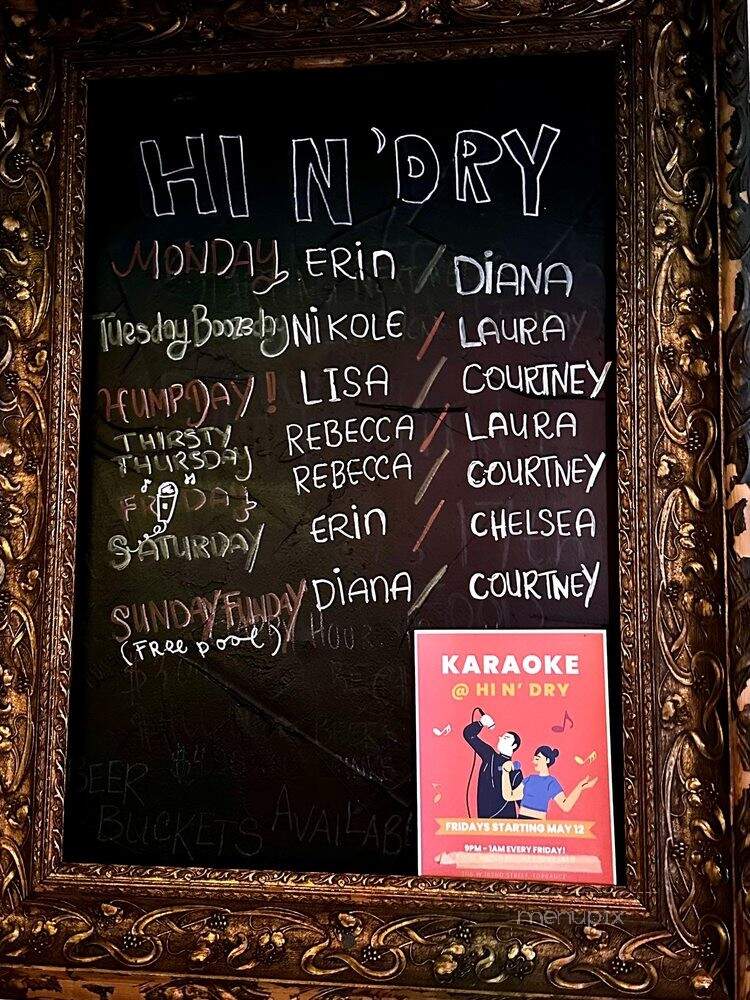 HI N'DRY
MONDAY ERin / DiANA
Tuesday Boozeday NiKOLE / LAURA
HUMPDAY! LISA / COURTNEY
THIRSTY THURSDAY REBECCA / LAURA
FRIDAY REBECCA / COURTNEY
SATURDAY ERin / CHELSEA
SUNDAY FUNDAY DiANA / COURTNEY
(FREE POOL)
HOUR
$4
BEER
BUCKETS AVAILAB
KARAOKE
@ HI N' DRY
FRIDAYS STARTING MAY 12
9PM - 1AM EVERY FRIDAY!
STREET, TORRANCE
menupix